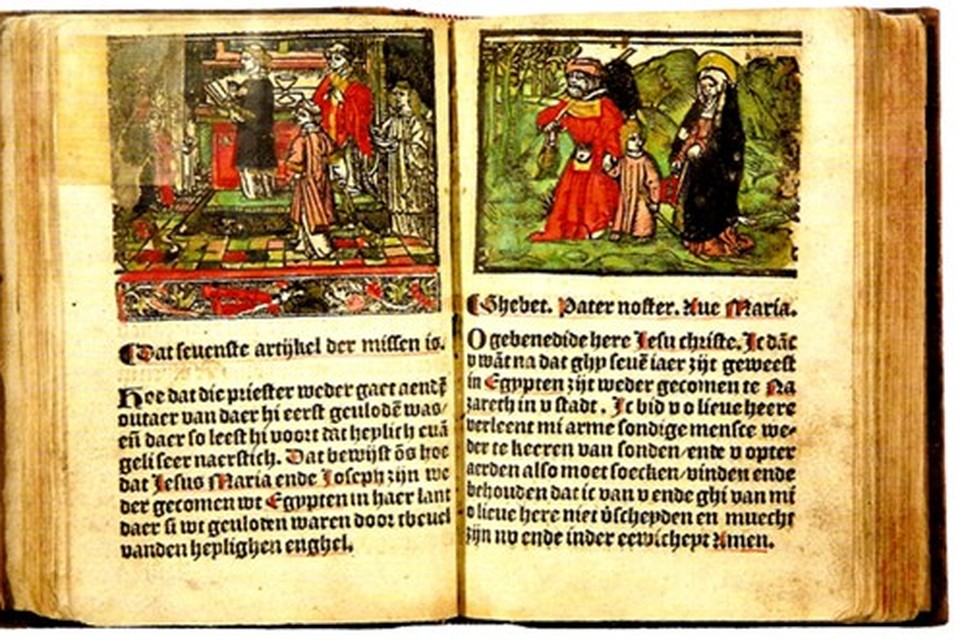 Dat seuenste artijkel der missen is.
Hoe dat die priester weder gaet aendē
outaer van daer hi eerst geulodē was/
eñ daer so leest hi voort dat heylich euā
geli seer naerstich. Dat bewijst ōs hoe
dat Jesus Maria ende Joseph zijn we
der gecomen wt Egypten in haer lant
daer si wt geuloten waren door tbeuel
vanden heylighen enghel.
Ghebet. Pater noster. Aue Maria.
O gebenedide here Jesu christe. Jc dāc
v wāt na dat ghy seuē iaer zijt geweest
in Egypten zijt weder gecomen te Na
zareth in v stadt. Jc bid v o lieue heere
verleent mi arme sondige mensce we-
der te keeren van sonden/ende v opter
aerden also moet soecken/vinden ende
behouden dat ic van v ende ghi van mi
o lieue here niet v̄scheyden en muecht
zijn nv ende inder eewicheyt Amen.